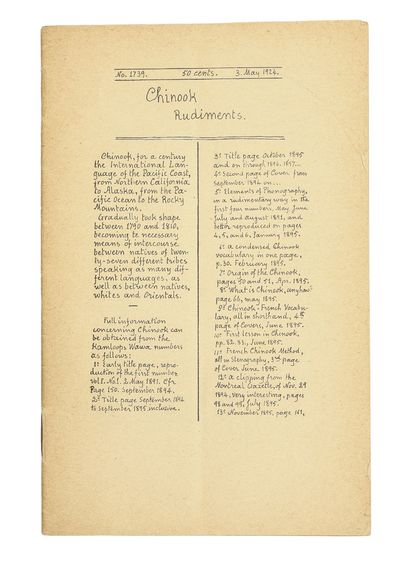 No. 1739. 50 cents. 3. May 1924.
Chinook
Rudiments.
Chinook, for a century
the International Lan-
guage of the Pacific Coast,
from Northern California
to Alaska, from the Pa-
cific Ocean to the Rocky
Mountains.
Gradually took shape
between 1790 and 1810,
becoming te necessary
means of intercourse
between natives of twen-
ty-seven different tribes
speaking as many dif-
ferent languages, as
well as between natives,
whites and Orientals.
Full information
concerning Chinook can
be obtained from the
Kamloops Wawa numbers
as follows:
1º Early title page, repro-
duction of the first number
vol 1. No1. 2 May 1891. Cfr.
Page 150. September 1894.
2º Title page September 1894
to September 1895 inclusive.
3º Title page October 1895
and on through 1896. 1897...
4º Second page of Cover from
September 1896 on...
5º Elements of Phonography,
in a rudimentary way in the
first four numbers, May, June
July and August 1891, and
better reproduced on pages
4, 5, and 6. January 1895.
6º a condensed Chinook
vocabulary in one page,
p. 30. February 1895.
7º Origin of the Chinook,
pages 50 and 51, Apr. 1895.
8º What is Chinook, anyhow
page 66, may 1895.
9º Chinook-French Vocabu-
lary, all in shorthand, 4th
page of Covers, June 1895.
10º First lesson in Chinook,
pp. 82. 83, June 1895.
11º French Chinook Method,
all in Stenography, 3rd page
of Cover June 1895.
12º a clipping from the
Montreal Gazette, of Nov. 29
1894. Very interesting, pages
98 and 99, July 1895.
13º November 1895, page 161,